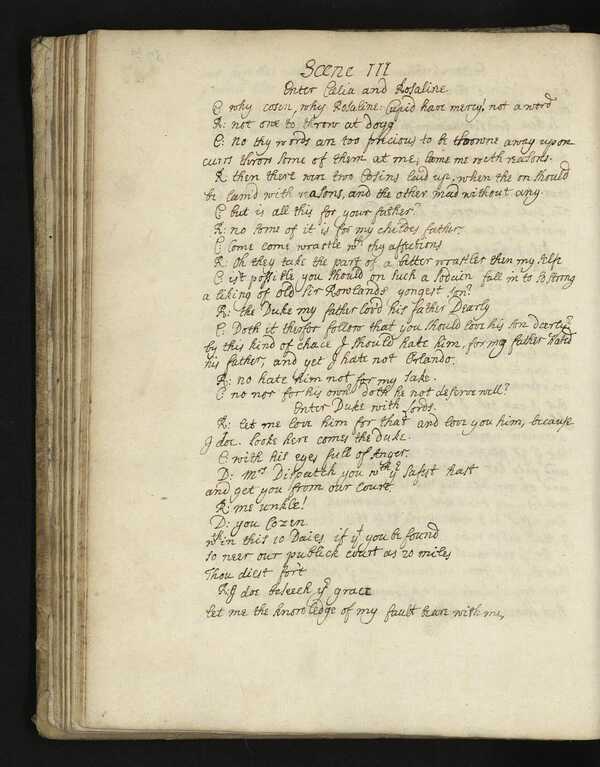 Scene III
Enter Celia and Rosaline
C: why cosen, whys Rosaline: Cupid have mercy, not a word
R: not one to throw at dogg
C: no thy words are too precious to be throwne away upon
currs throw some of them at me, lame me with reasons.
R then there were two Cosins laid up, when the on should
be lam'd with reasons, and the other mad without any.
C but is all this for your father?
R: no some of it is for my childes father.
C come come wrastle wth thy affections
R: Oh they take the part of a better wrastler then my selfe
C is't possible you should on such a sodain fall in to so strong
a liking of old Sir Rowlands yongest son?
R: the Duke my father lovd his father Dearly
C: Doth it therfor follow that you should love his son dearly?
by this kind of chace I should hate him, for my father hated
his father, and yet I hate not Orlando.
R: no hate him not for my sake.
C no nor for his own doth he not deserve well?
Enter Duke with Lords.
R: let me love him for that and love you him, because
I doe. looke here comes the duke.
C with his eyes full of Anger.
D: Mrs Dispatch you wth yr safest hast
and get you from our Court.
R me unkle!
D: you Cozen
wthin this 10 Daies if yt you be found
so neer our publick court as 20 miles
Thou diest for't
R I doe beseech yr grace
let me the knowledge of my fault beare with me,